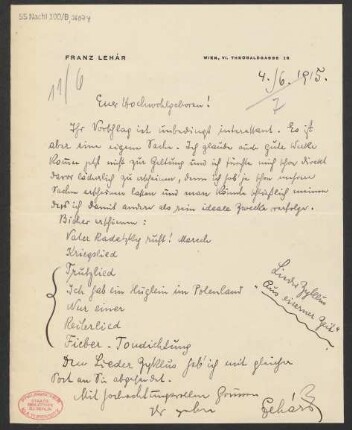 SS.Nachl 200/B
FRANZ LEHÁR
WIEN, VI. THEOBALDGASSE 16
4./6. 1915.
11/6
7
Euer Hochwohlgeboren!
Ihr Vorschlag ist unbedingt interessant. Es ist
aber eine eigene Sache. Ich glaube auch gute Werke
kommen jetzt nicht zur Geltung und ich fürchte mich schon direkt
davor lächerlich zu erscheinen, denn ich hab' ja schon mehrere
Sachen erscheinen lassen und man könnte schließlich meinen
dass ich damit andere als rein ideale Zwecke verfolge.
Bisher erschienen:
Vater Radetzky ruft! Marsch
Kriegslied
Trutzlied
Ich hab ein Hüglein im Polenland
Nur einer
Reiterlied
Fieber - Tondichtung
Lieder Zyklus
Aus eiserner Zeit
Den Lieder Zyklus hab' ich mit gleicher
Post an Sie abgesendet.
Mit hochachtungsvollen Grüssen
Ihr ergebener
Lehár